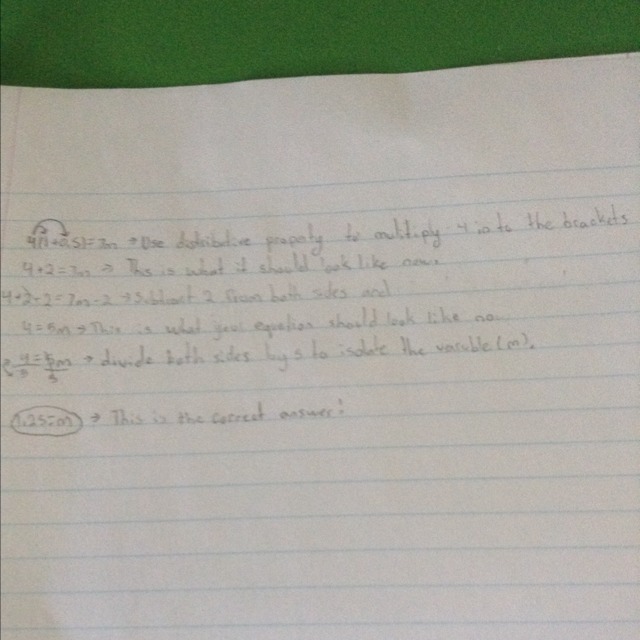 4(1+0.5)=7m → Use distributive property to multiply 4 into the brackets
4+2=7m → This is what it should look like now.
4+2-2=7m-2 → Subtract 2 from both sides and
4=5m → This is what your equation should look like no
4=5m → divide both sides by 5 to isolate the variable (m).
5 5
1.25=m → This is the correct answer!